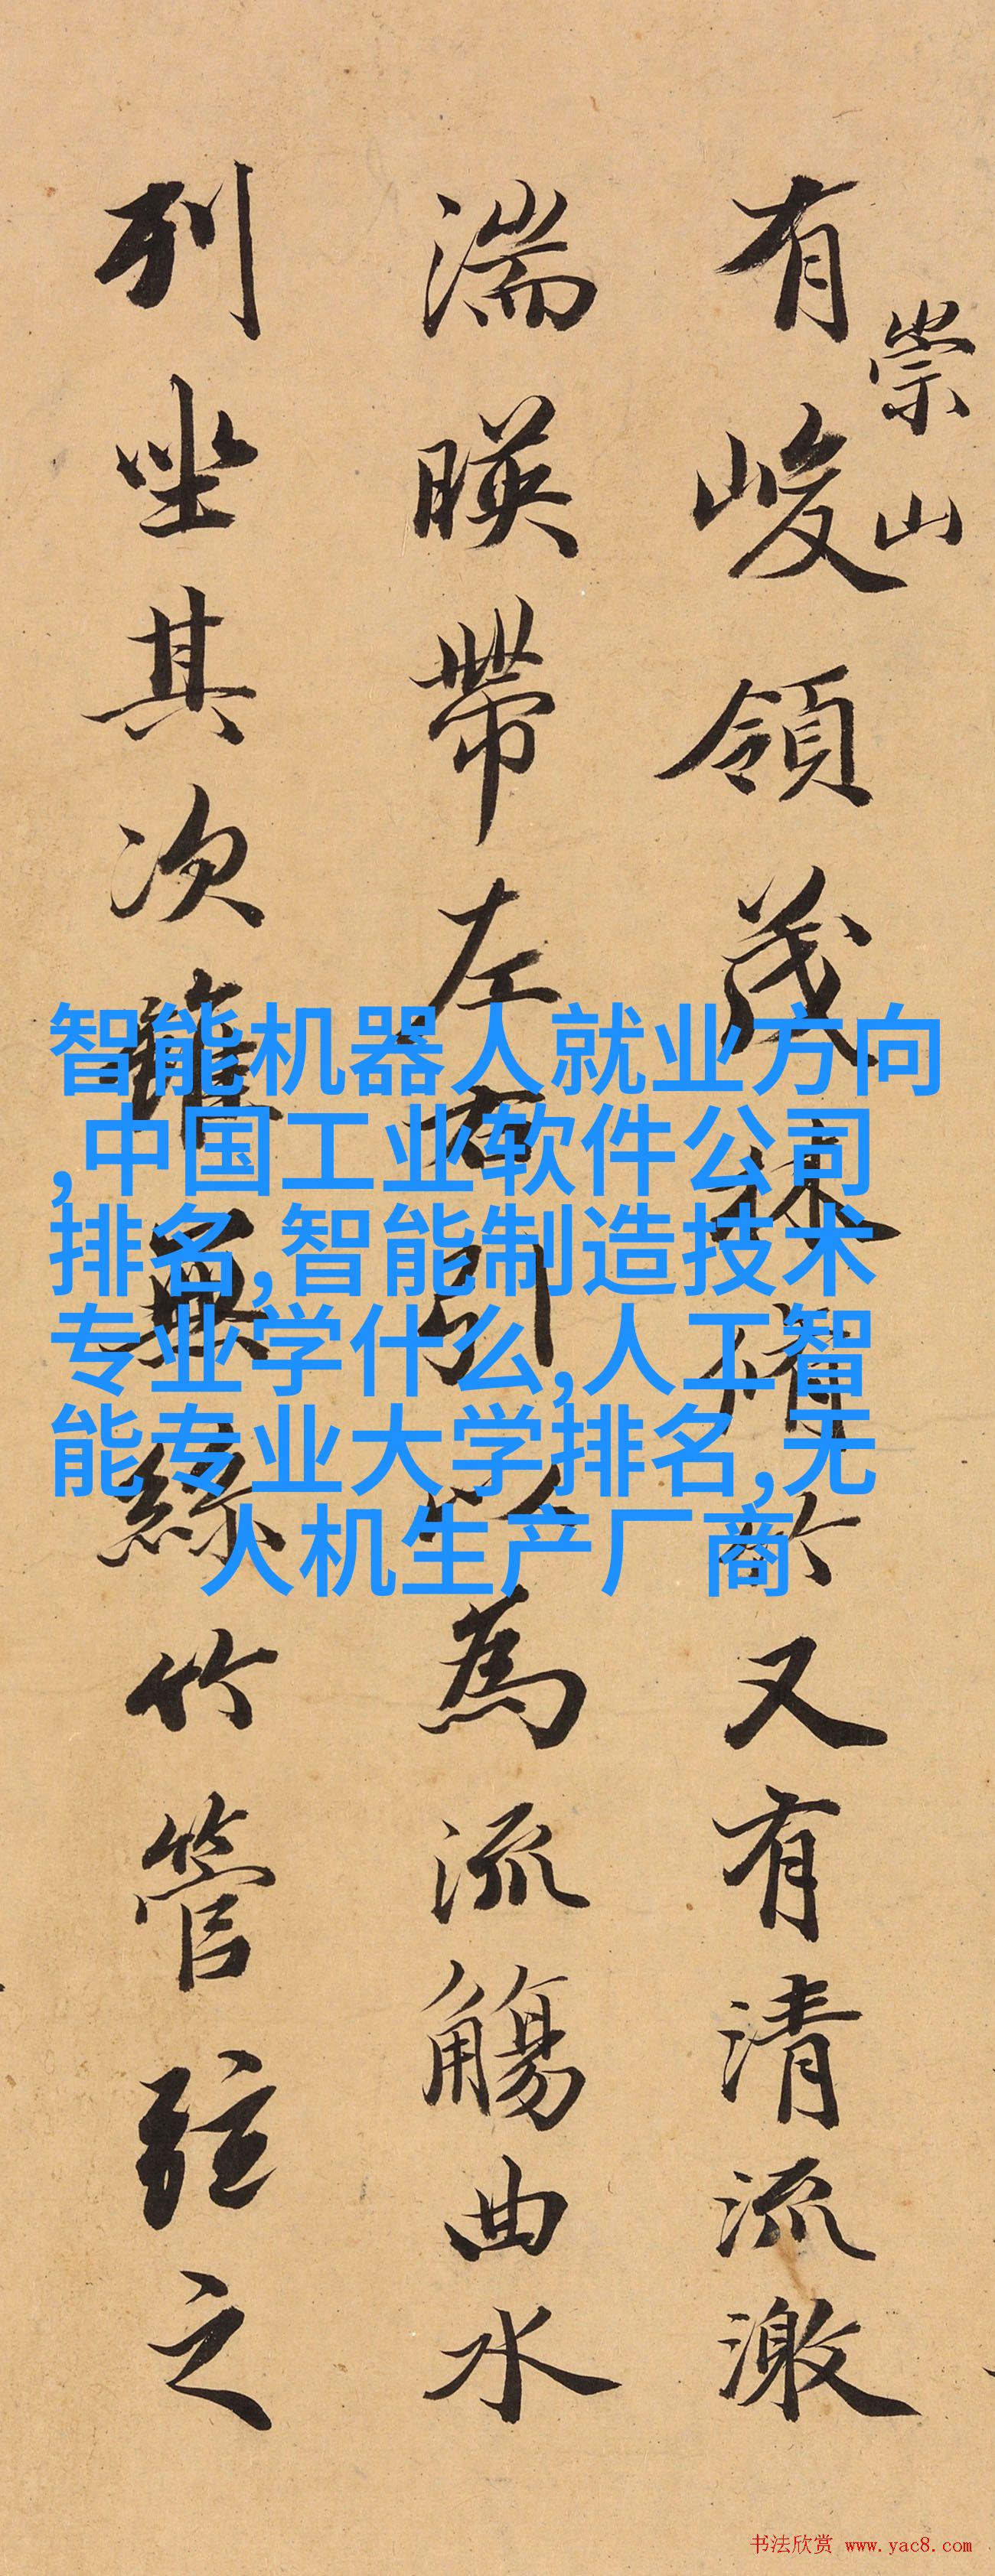 有崇山峻領茂林脩竹又有清流激
湍暎帶左右引以為流觴曲水
列坐其次雖無絲竹管弦之
智能机器人就业方向
,中国工业软件公司
排名,智能制造技术
专业学什么,人工智
能专业大学排名,无
人机生产厂商
书法欣赏 www.yac8.com